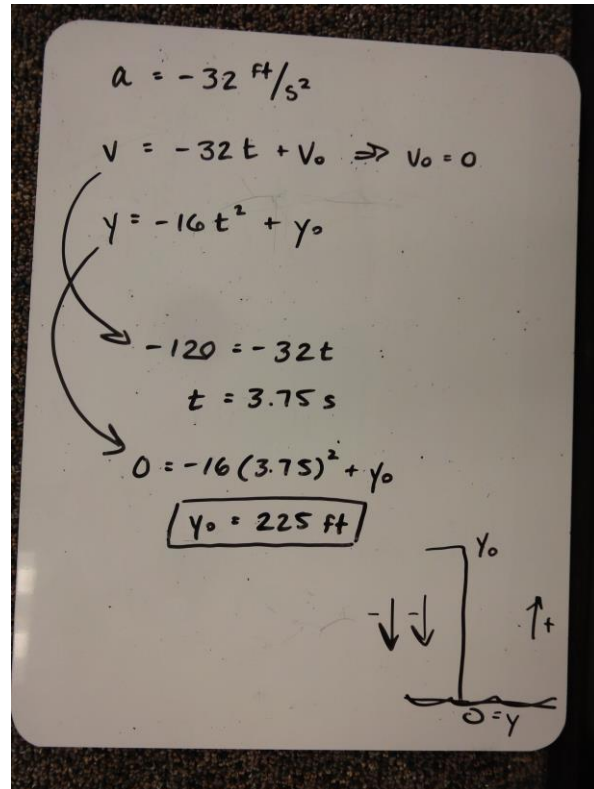 a = -32 ft/s²
v = -32t + v₀ ⇒ v₀ = 0
y = -16t² + y₀
-120 = -32t
t = 3.75 s
0 = -16(3.75)² + y₀
y₀ = 225 ft
y₀
- -
+
0 = y